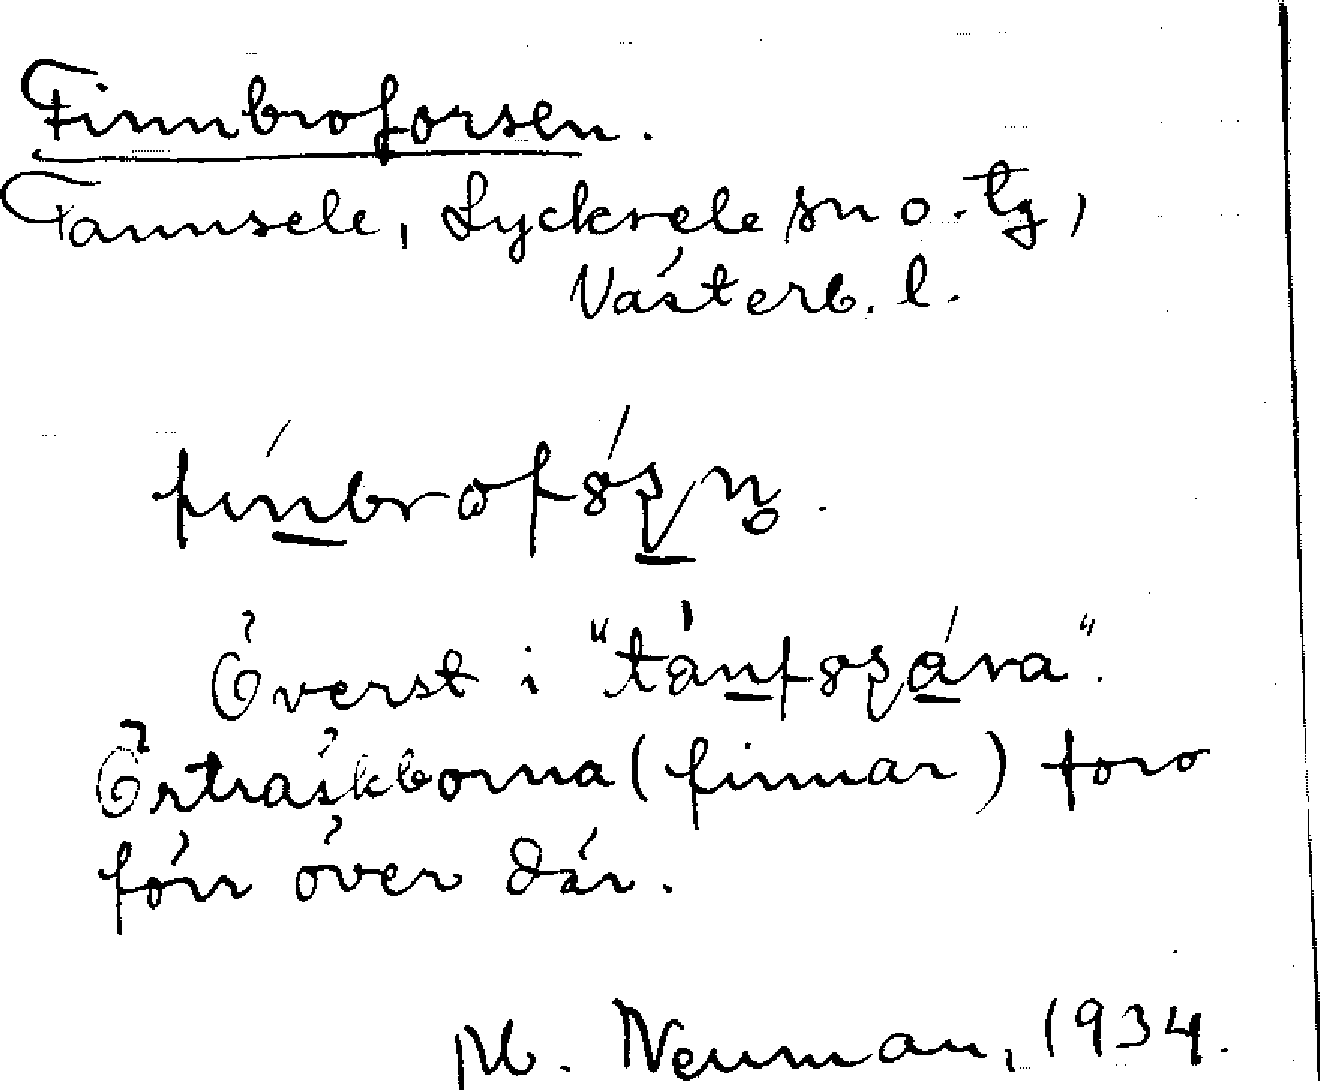 Finnbroforsen.
Tannsele, Lycksele sn o. tg,
Västerb. l.
Överst i
Örträskborna (finnar) foro
förr över där.
M. Neuman, 1934.